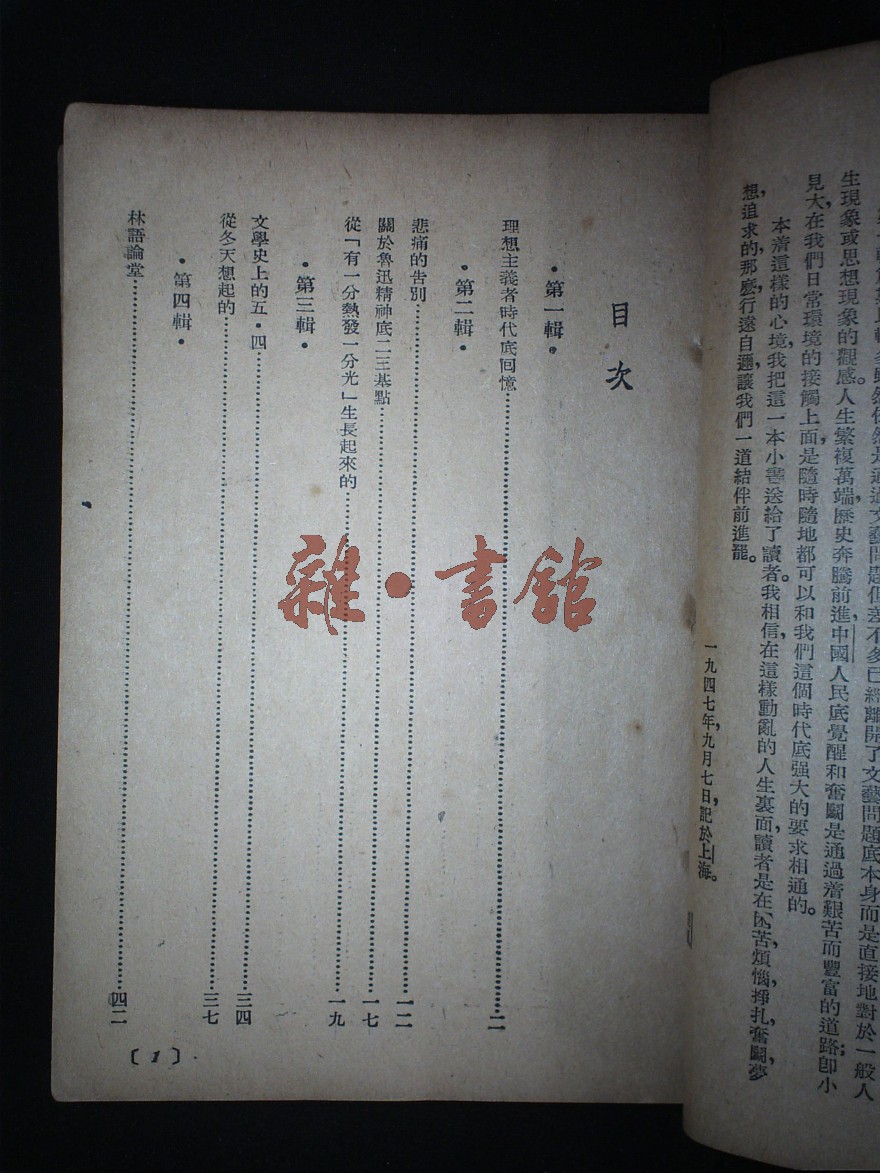 生現象或思想現象的觀感。人生繁複萬端，歷史奔騰前進，中國人民底覺醒和奮鬬是通過着艱苦而豐富的道路；卽小
見大，在我們日常環境的接觸上面，是隨時隨地都可以和我們這個時代底强大的要求相通的。
本着這樣的心境，我把這一本小書送給了讀者。我相信，在這樣動亂的人生裏面，讀者是在困苦，煩惱，掙扎，奮鬬，夢
想，追求的，那麽，行遠自邇，讓我們一道結伴前進罷。
一九四七年，九月七日，記於上海。
目次
•第一輯•
理想主義者時代底回憶……二
•第二輯•
悲痛的告別……一二
關於魯迅精神底二三基點……一七
從「有一分熱發一分光」生長起來的……一九
•第三輯•
文學史上的五•四……三四
從冬天想起的……三七
•第四輯•
林語堂論……四二
〔1〕
雜•書館